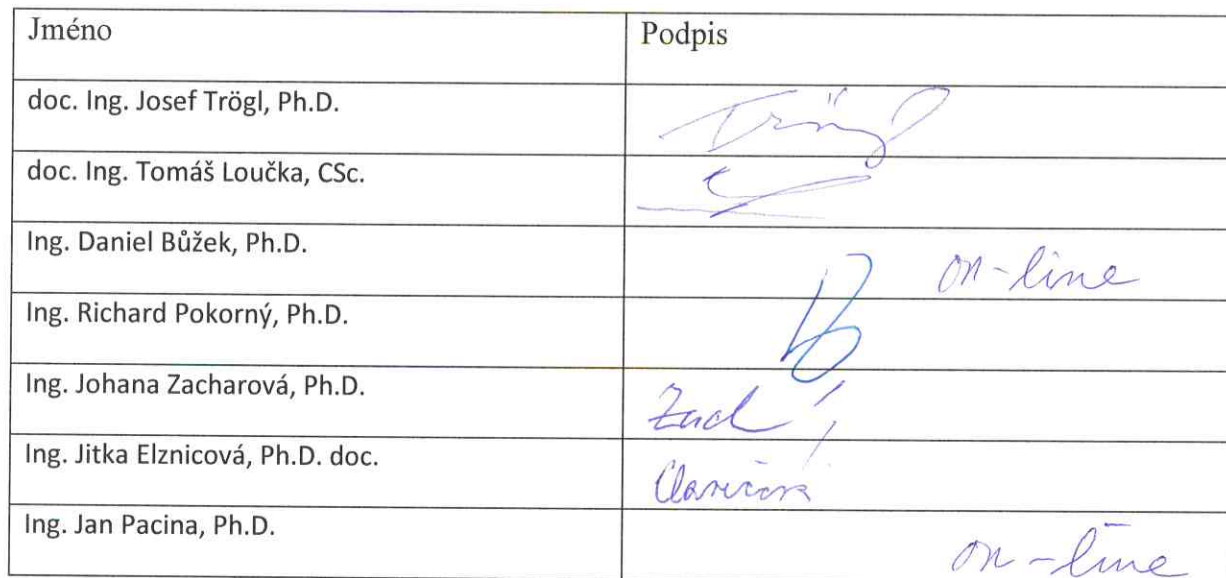 Jméno Podpis
doc. Ing. Josef Trögl, Ph.D. Trögl
doc. Ing. Tomáš Loučka, CSc.
Ing. Daniel Bůžek, Ph.D. on-line
Ing. Richard Pokorný, Ph.D.
Ing. Johana Zacharová, Ph.D.
Ing. Jitka Elznicová, Ph.D. doc.
Ing. Jan Pacina, Ph.D. on-line